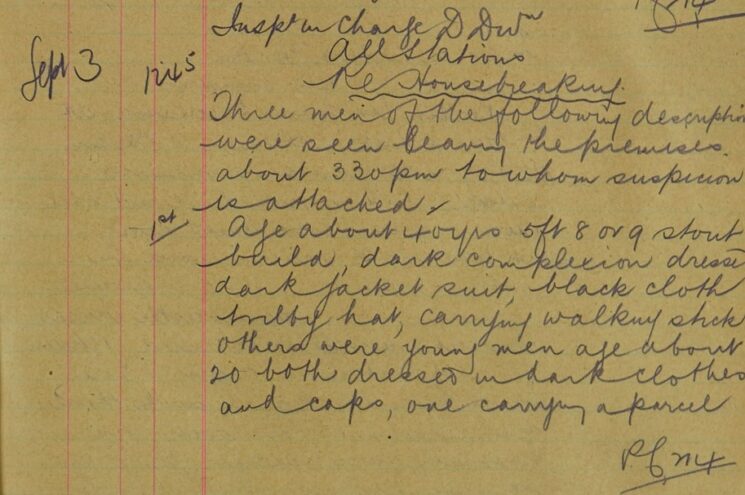 Inspt in Charge D Divn
All Stations
Sept 3 1245 Re Housebreaking.
Three men of the following descriptio
were seen leaving the premises
about 330pm to whom suspicion
is attached.
1st Age about 40 yrs 5ft 8 or 9 stout
build, dark complexion dresse
dark jacket suit, black cloth
trilby hat, carrying walking stick
others were young men age about
20 both dressed in dark clothes
and caps, one carrying a parcel